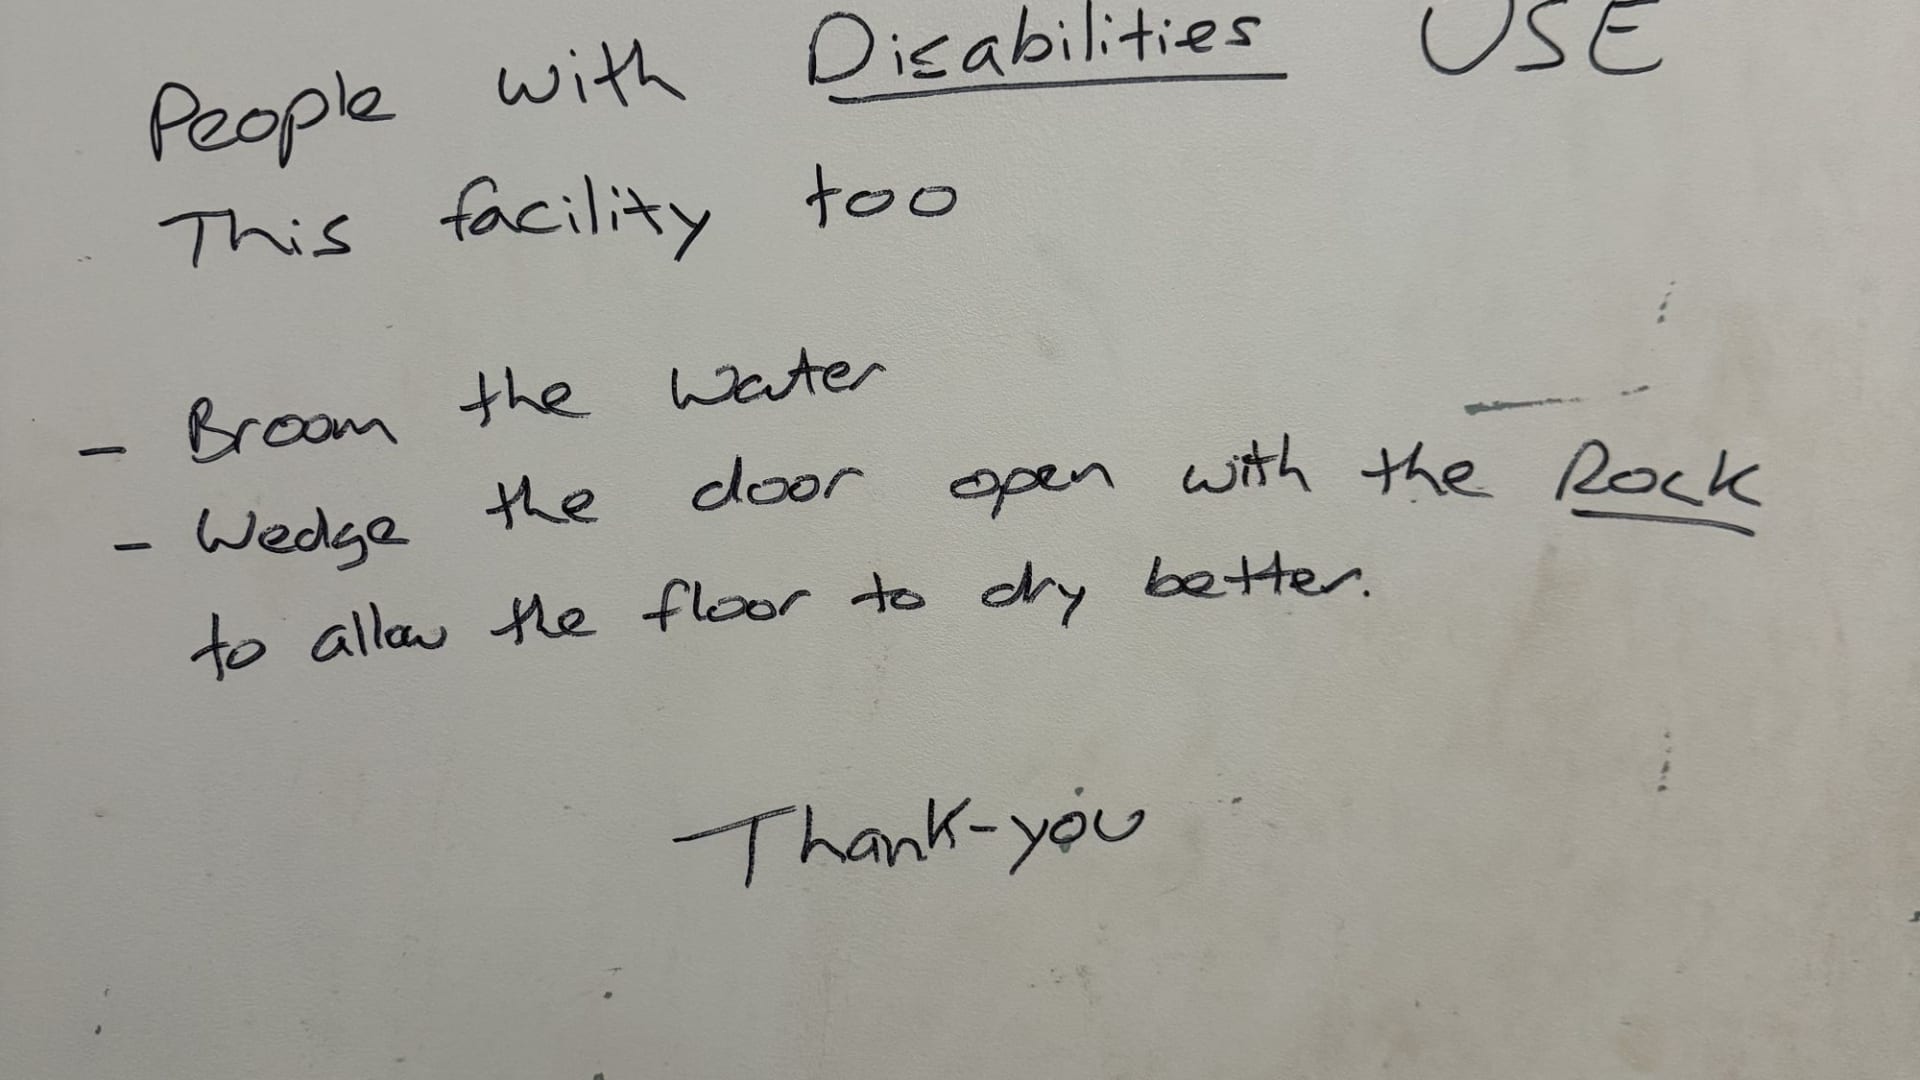 People with Disabilities USE
This facility too
- Broom the water
- Wedge the door open with the Rock
to allow the floor to dry better.
Thank-you